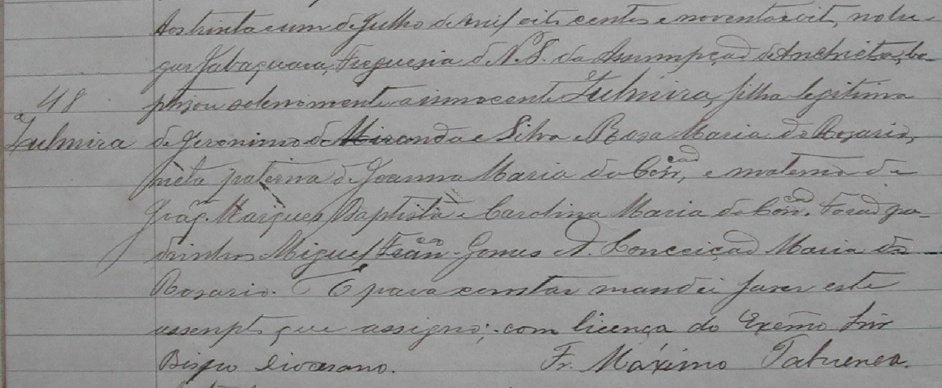 Aos trinta e um de Julho de mil oito centos e noventa e oito, no lu-
gar Jabaquara, Freguesia d N. S. da Assumpçaõ de Anchieta, ba-
48
ptizou solemnemente a innocente Zulmira, filha legitima
Zulmira
de Jeronimo de Miranda e Silva e Rosa Maria do Rosario,
neta paterna de Joanna Maria da Conçad, e materna de
Marques Baptista e Carolina Maria da Conçad. Forad pa-
drinhos Miguel Franco Gomes e Conceiçaõ Maria do
Rosario. E para constar mandei faser este
assempto que assigno; com licença do Exemo Snr
Bispo Diocesano. Fr. Máximo Tabuenca.